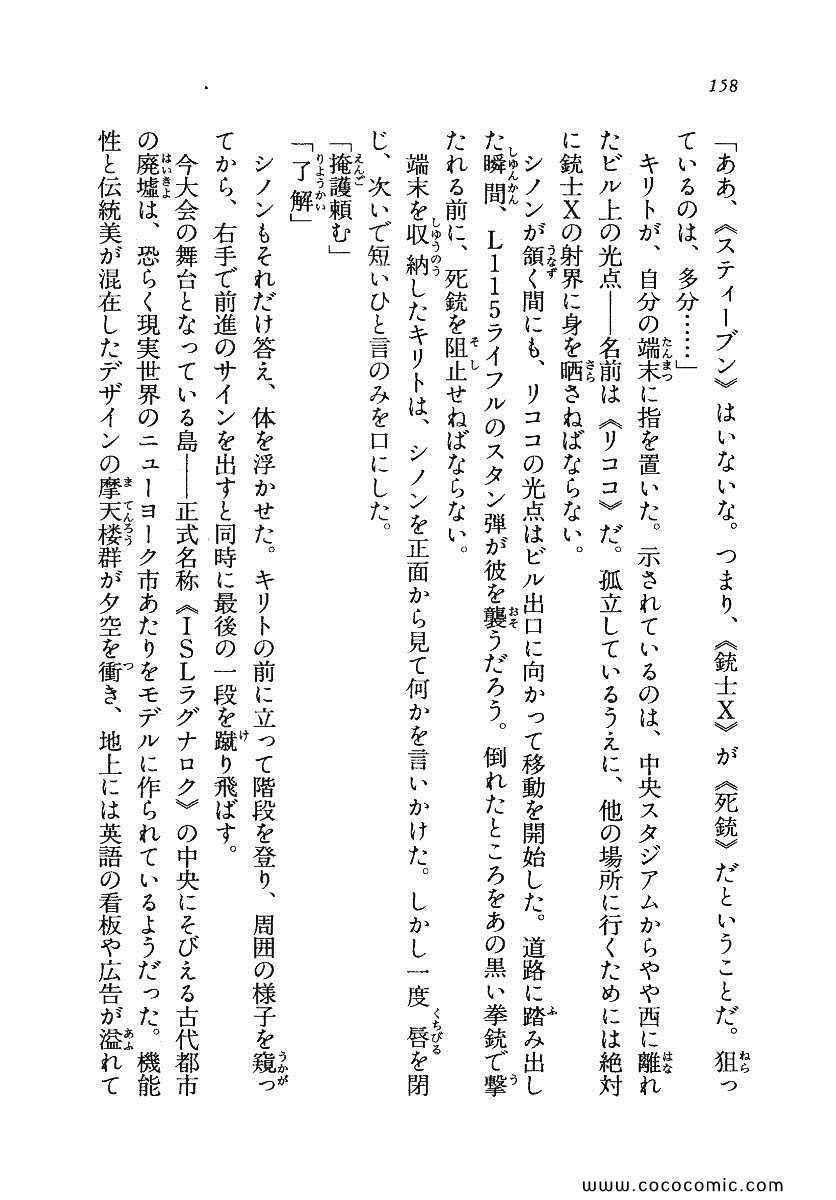 158
「ああ、《スティーブン》はいないな。つまり、《銃士X》が《死銃》だということだ。狙っ
ているのは、多分……」
　キリトが、自分の端末に指を置いた。示されているのは、中央スタジアムからやや西に離れ
たビル上の光点――名前は《リココ》だ。孤立しているうえに、他の場所に行くためには絶対
に銃士Xの射界に身を晒さねばならない。
　シノンが頷く間にも、リココの光点はビル出口に向かって移動を開始した。道路に踏み出し
た瞬間、L115ライフルのスタン弾が彼を襲うだろう。倒れたところをあの黒い拳銃で撃
たれる前に、死銃を阻止せねばならない。
　端末を収納したキリトは、シノンを正面から見て何かを言いかけた。しかし一度唇を閉
じ、次いで短いひと言のみを口にした。
「掩護頼む」
「了解」
　シノンもそれだけ答え、体を浮かせた。キリトの前に立って階段を登り、周囲の様子を窺っ
てから、右手で前進のサインを出すと同時に最後の一段を蹴り飛ばす。
　今大会の舞台となっている島――正式名称《ISLラグナロク》の中央にそびえる古代都市
の廃墟は、恐らく現実世界のニューヨーク市あたりをモデルに作られているようだった。機能
性と伝統美が混在したデザインの摩天楼群が夕空を衝き、地上には英語の看板や広告が溢れて
www.cococomic.com